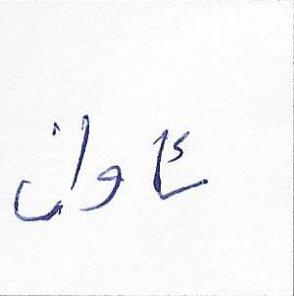 شاوان